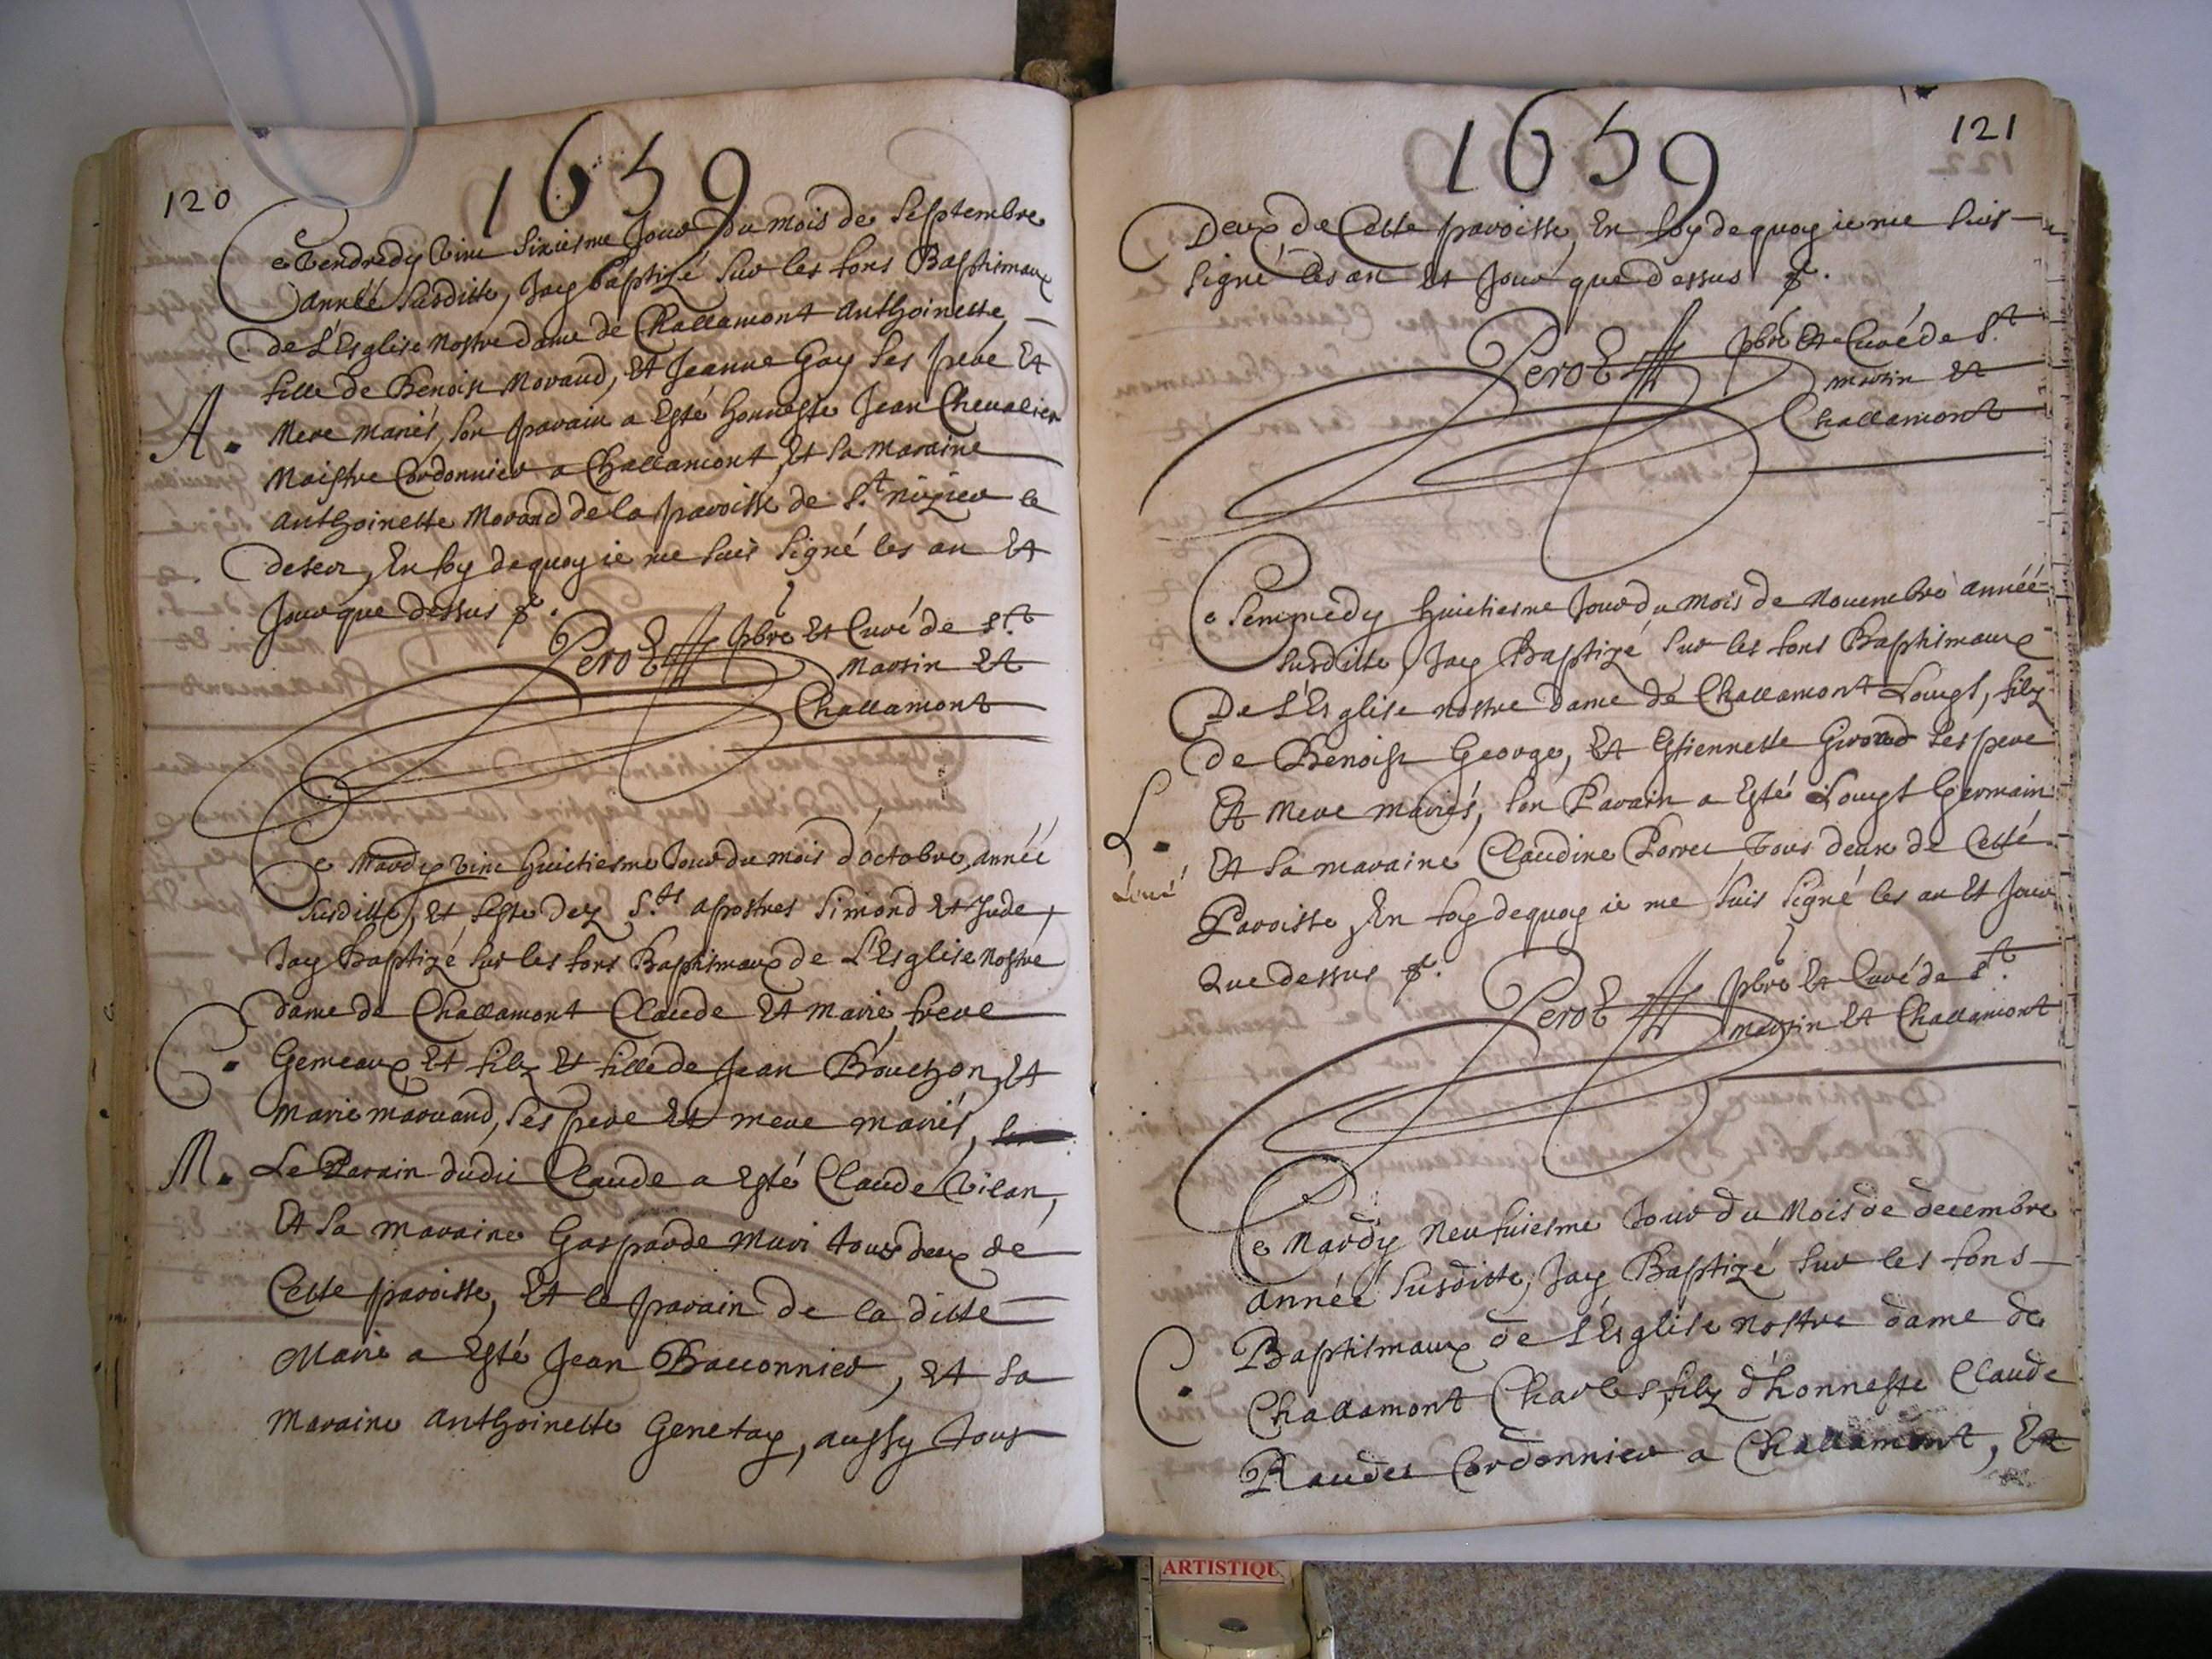 120
1659
Ce Vendredy Vint Sixiesme Jour du mois de Septembre
année Susditte, Jay baptizé Sur les fons Baptismaux
de L'Esglise Nostre dame de Challamont Anthoinette
fille de Benoist Morand, Et Jeanne Gay Ses pere Et
A. Mere mariés, Son parain a Esté honneste Jean Chevalier
Maistre Cordonnier a Challamont, Et Sa maraine
Anthoinette Morand de la paroisse de St. nizier le
desert, En foy de quoy ie me suis Signé les an Et
Jour que dessus
Perot pbre Et Curé de St.
Martin Et
Challamont
Ce Mardy Vint huictiesme Jour du mois d'octobre, année
Susditte, Et feste dez Sts. apostres Simond Et Jude,
Jay Baptizé Sur les fons Baptismaux de L'Esglise Nostre
dame de Challamont Claude Et Marie, frere
C. Gemeaux, Et filz Et fille de Jean Bouchon, Et
Marie maruand, Ses pere Et mere mariés,
M. Le Parain dudit Claude a Esté Claude Vilan,
Et Sa maraine Gasparde Muri tous deux de
Cette paroisse, Et le parain de la ditte
Marie a Esté Jean Baconnier, Et Sa
Maraine Anthoinette Genetay, aussy tous
121
1659
Deux de Cette paroisse, En foy de quoy ie me suis
Signé les an Et Jour que dessus
Perot pbre Et Curé de St.
martin Et
Challamont
Ce Semmedy huictiesme Jour du Mois de Nouembre année
Susditte, Jay Baptizé Sur les fons Baptismaux
De L'Esglise nostre dame de Challamont Louys, filz
de Benoist George, Et Estiennette Girard Ses pere
L. Et Mere mariés, Son Parain a Esté Louys Germain
Et Sa maraine Claudine Tous deux de Cette
Paroisse, En foy de quoy ie me suis Signé les an Et Jour
Que dessus
Perot pbre Et Curé de St.
martin Et Challamont
Ce Mardy Neufuiesme Jour du Mois de decembre
année Susditte, Jay Baptizé Sur les fons
Baptismaux de L'Esglise Nostre dame de
C. Challamont Charles, filz d'honneste Claude
Cordonnier a Challamont, Et
ARTISTIQU